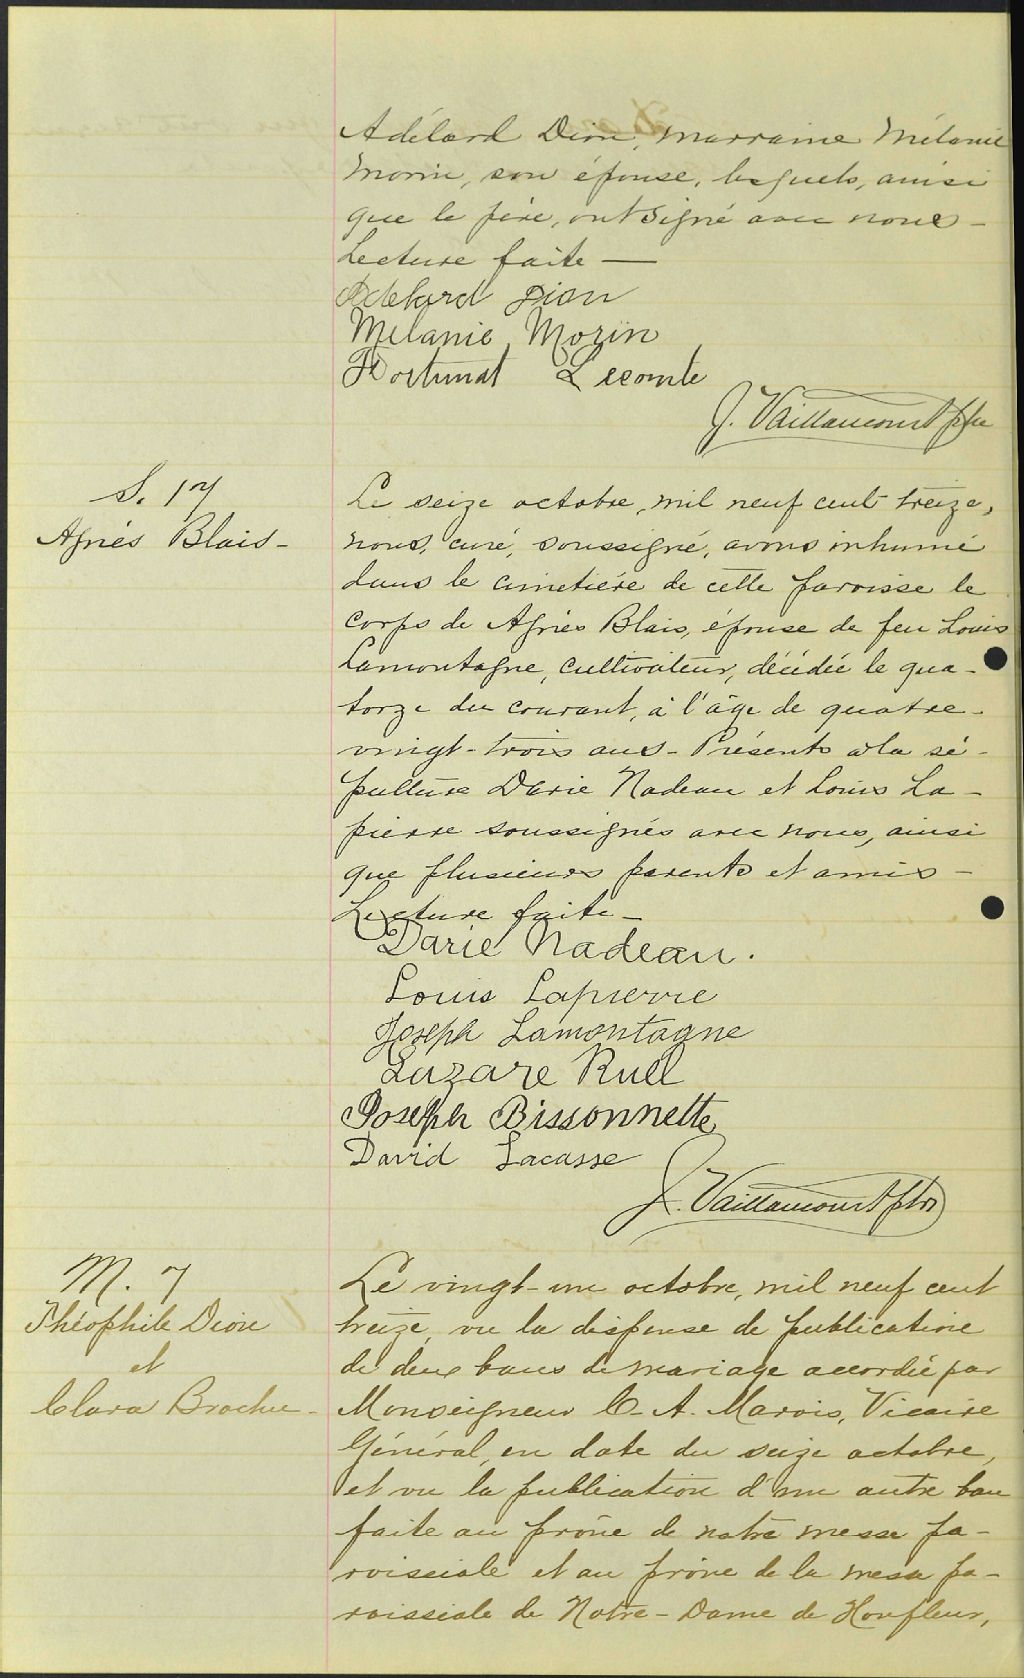 Adélard Dion, marraine Mélanie
Morin, son épouse, lesquels, ainsi
que le père, ont signé avec nous –
Lecture faite —
Adelard Dion
Melanie Morin
Fortunat Lecomte
J. Vaillancourt ptre
S. 17
Agnés Blais –
Le seize octobre, mil neuf cent treize,
nous, curé, soussigné, avons inhumé
dans le cimetière de cette paroisse le
corps de Agnès Blais, épouse de feu Louis
Lamontagne, cultivateur, décédée le qua-
torze du courant, à l'âge de quatre-
vingt-trois ans – Présents à la sé-
pulture Darie Nadeau et Louis La-
pierre soussignés avec nous, ainsi
que plusieurs parents et amis –
Lecture faite –
Darie Nadeau.
Louis Lapierre
Joseph Lamontagne
Lazare Ruel
Joseph Bissonnette
David Lacasse
J. Vaillancourt ptre
M. 7
Théophile Dion
et
Clara Brochu –
Le vingt-un octobre, mil neuf cent
treize, vu la dispense de publication
de deux bans de mariage accordée par
Monseigneur C. A. Marois, Vicaire
Général, en date du seize octobre,
et vu la publication d'un autre ban
faite au prône de notre messe pa-
roissiale et au prône de la messe pa-
roissiale de Notre-Dame de Honfleur,